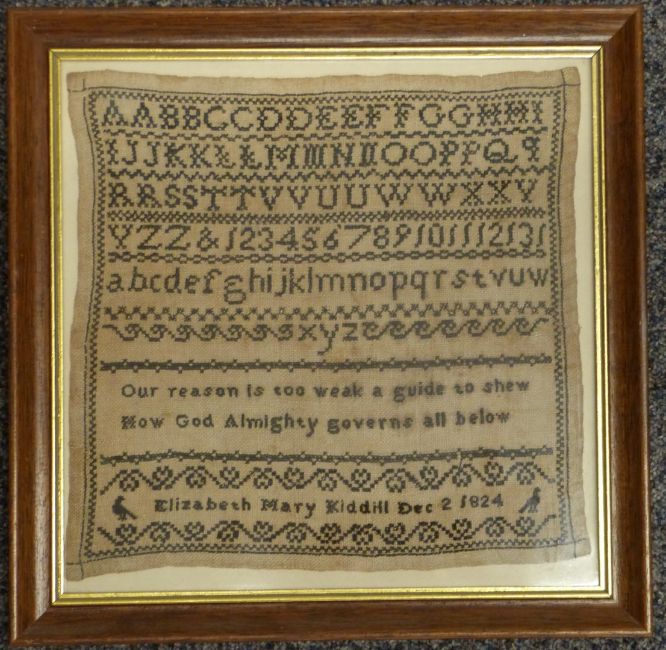 AABBCCDDEEFFGGHHI
IJJKKLLMMNNOOPPQQ
RRSSTTVVUUWWXXY
YZZ&123456789101112131
abcdefghijklmnopqrstvuw
xyz
Our reason is too weak a guide to shew
How God Almighty governs all below
Elizabeth Mary Kiddill Dec 2 1824